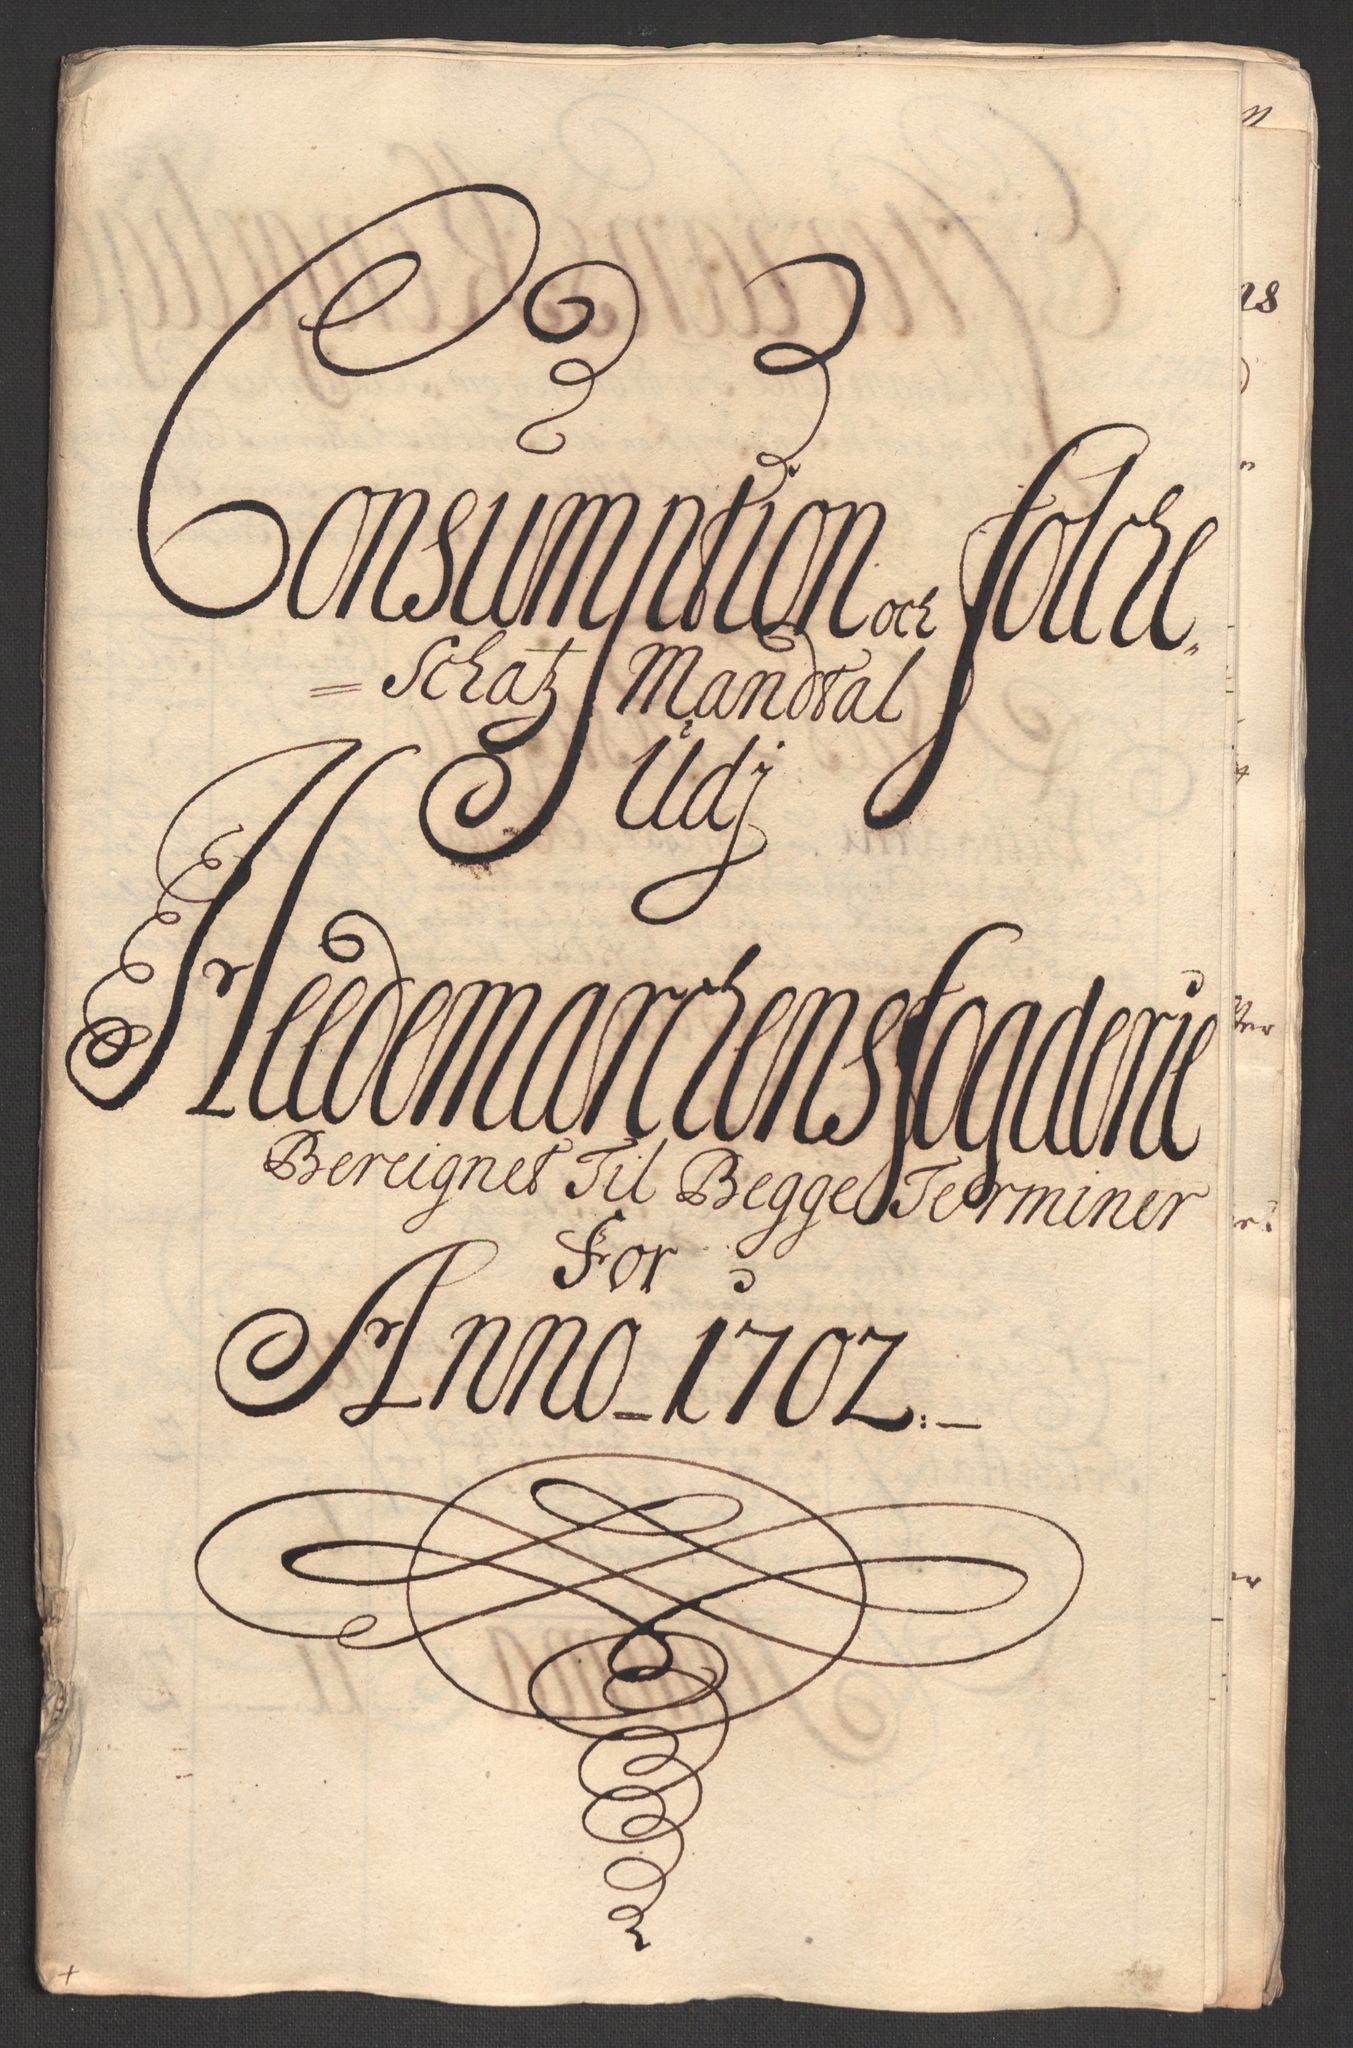 Consumption och folche„
= Schatz Mandtal
Udj
Heedemarchens fogderie
Bereignet Til Begge Terminer
For
Anno_ 1702.:_